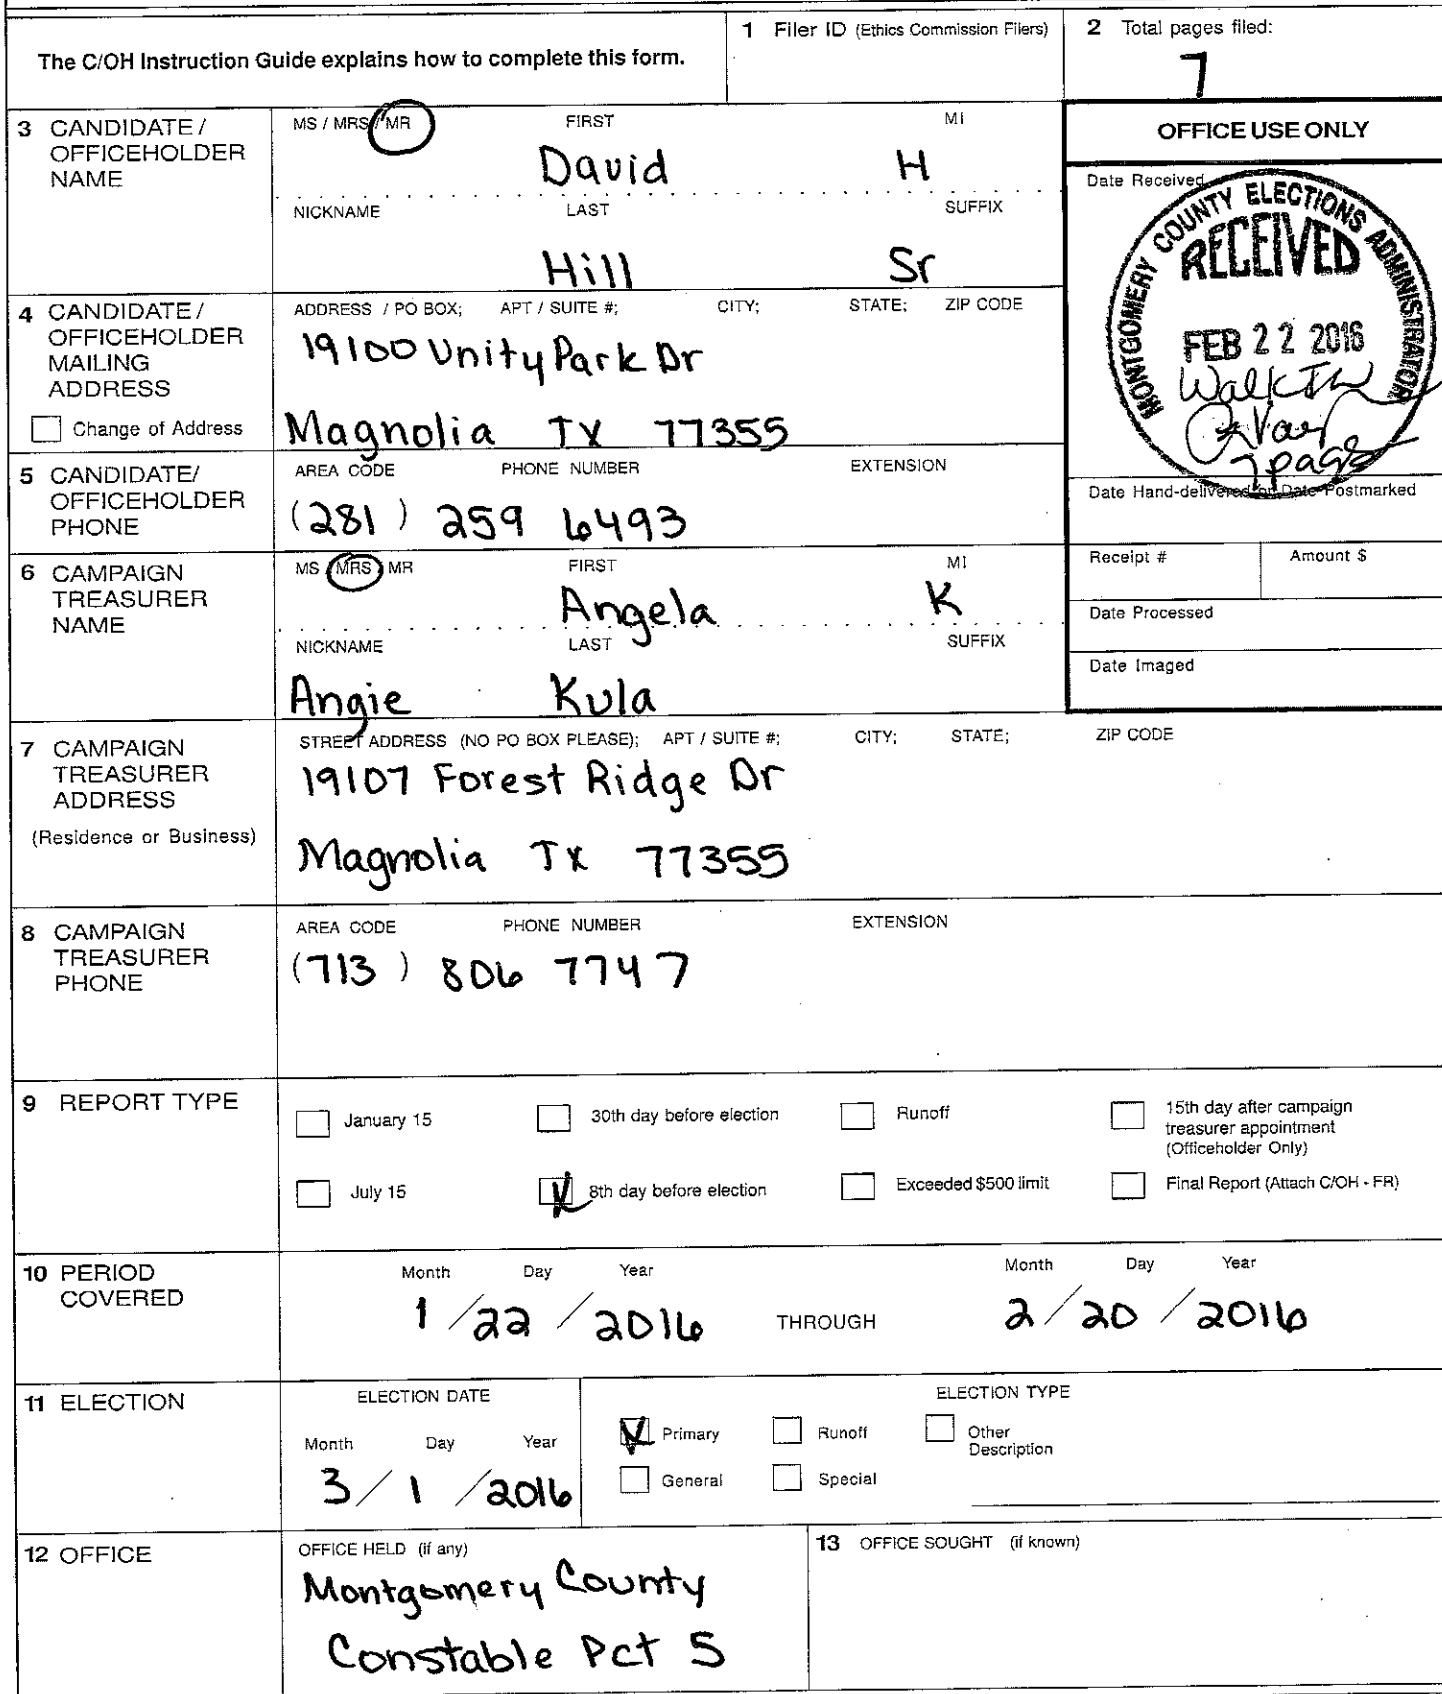 The C/OH Instruction Guide explains how to complete this form.
1 Filer ID (Ethics Commission Filers)
2 Total pages filed:
7
3 CANDIDATE / OFFICEHOLDER NAME
MS / MRS / MR
FIRST
MI
David
H
NICKNAME
LAST
SUFFIX
Hill
Sr
OFFICE USE ONLY
Date Received
MONTGOMERY COUNTY ELECTIONS ADMINISTRATOR
RECEIVED
FEB 22 2016
Walk In
7 pages
Date Hand-delivered or Date Postmarked
Receipt #
Amount $
Date Processed
Date Imaged
4 CANDIDATE / OFFICEHOLDER MAILING ADDRESS
Change of Address
ADDRESS / PO BOX; APT / SUITE #; CITY; STATE; ZIP CODE
19100 Unity Park Dr
Magnolia TX 77355
5 CANDIDATE/ OFFICEHOLDER PHONE
AREA CODE
PHONE NUMBER
EXTENSION
(281) 259 6493
6 CAMPAIGN TREASURER NAME
MS / MRS / MR
FIRST
MI
Angela
K
NICKNAME
LAST
SUFFIX
Angie
Kula
7 CAMPAIGN TREASURER ADDRESS
(Residence or Business)
STREET ADDRESS (NO PO BOX PLEASE); APT / SUITE #; CITY; STATE; ZIP CODE
19107 Forest Ridge Dr
Magnolia Tx 77355
8 CAMPAIGN TREASURER PHONE
AREA CODE
PHONE NUMBER
EXTENSION
(713) 806 7747
9 REPORT TYPE
January 15
30th day before election
Runoff
15th day after campaign treasurer appointment (Officeholder Only)
July 15
8th day before election
Exceeded $500 limit
Final Report (Attach C/OH - FR)
10 PERIOD COVERED
Month Day Year
1 / 22 / 2016
THROUGH
Month Day Year
2 / 20 / 2016
11 ELECTION
ELECTION DATE
Month Day Year
3 / 1 / 2016
ELECTION TYPE
Primary
Runoff
Other Description
General
Special
12 OFFICE
OFFICE HELD (if any)
Montgomery County
Constable Pct 5
13 OFFICE SOUGHT (if known)